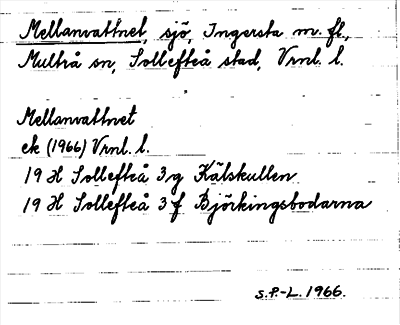 Mellanvattnet, sjö, Ingersta m. fl.,
Multrå sn, Sollefteå stad, Vrnl. l.
Mellanvattnet
ek (1966) Vrnl. l.
19 H Sollefteå 3 g Kälskullen
19 H Sollefteå 3 f Björkingsbodarna
S.P.-L. 1966.